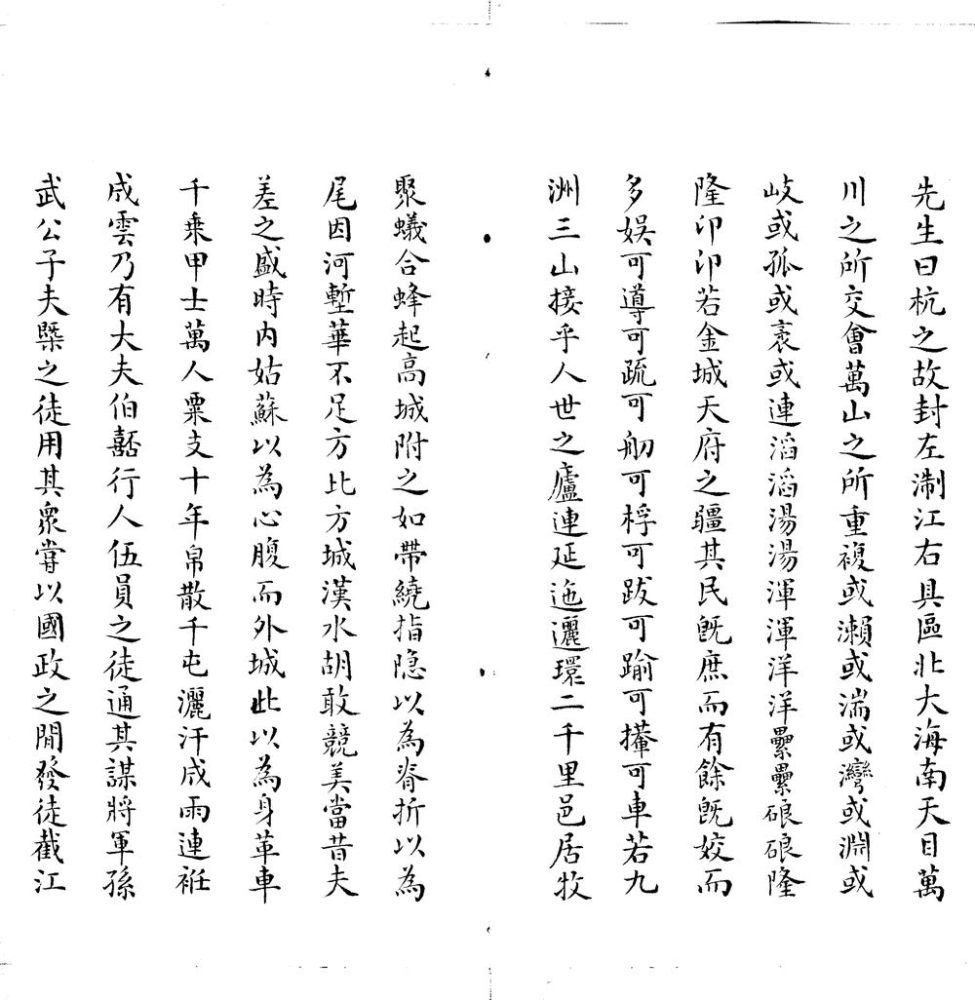 先生曰杭之故封左淛江右具區北大海南天目萬
川之所交會萬山之所重複或瀨或湍或灣或淵或
岐或孤或袤或連滔滔湯湯渾渾洋洋纍纍硠硠隆
隆卬卬若金城天府之疆其民既庶而有餘既姣而
多娛可導可疏可舠可桴可跋可踰可攆可車若九
洲三山接乎人世之廬連延迤邐環二千里邑居牧
聚蟻合蜂起高城附之如帶繞指隱以為脊折以為
尾因河塹華不足方比方城漢水胡敢競美當昔夫
差之盛時内姑蘇以為心腹而外城此以為身革車
千乗甲士萬人粟支十年帛散千屯灑汗成雨連袵
成雲乃有大夫伯嚭行人伍員之徒通其謀將軍孫
武公子夫槩之徒用其衆嘗以國政之閒發徒截江